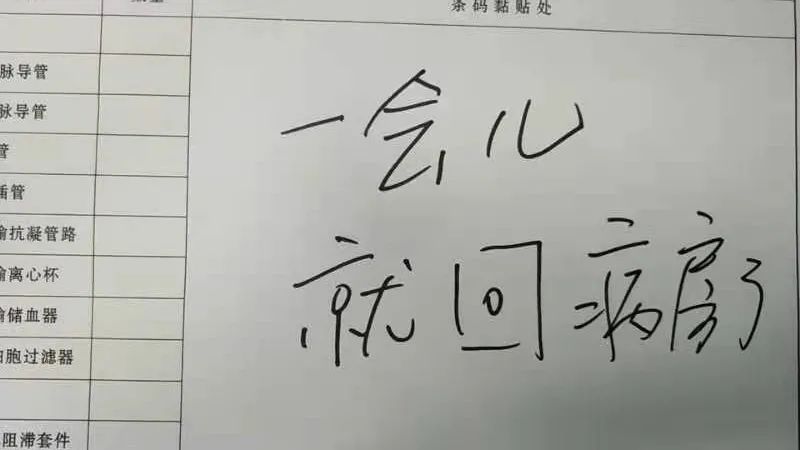 条码黏贴处
脉导管
脉导管
管
插管
抗凝管路
离心杯
储血器
胞过滤器
阻滞套件
一会儿
就回病房了